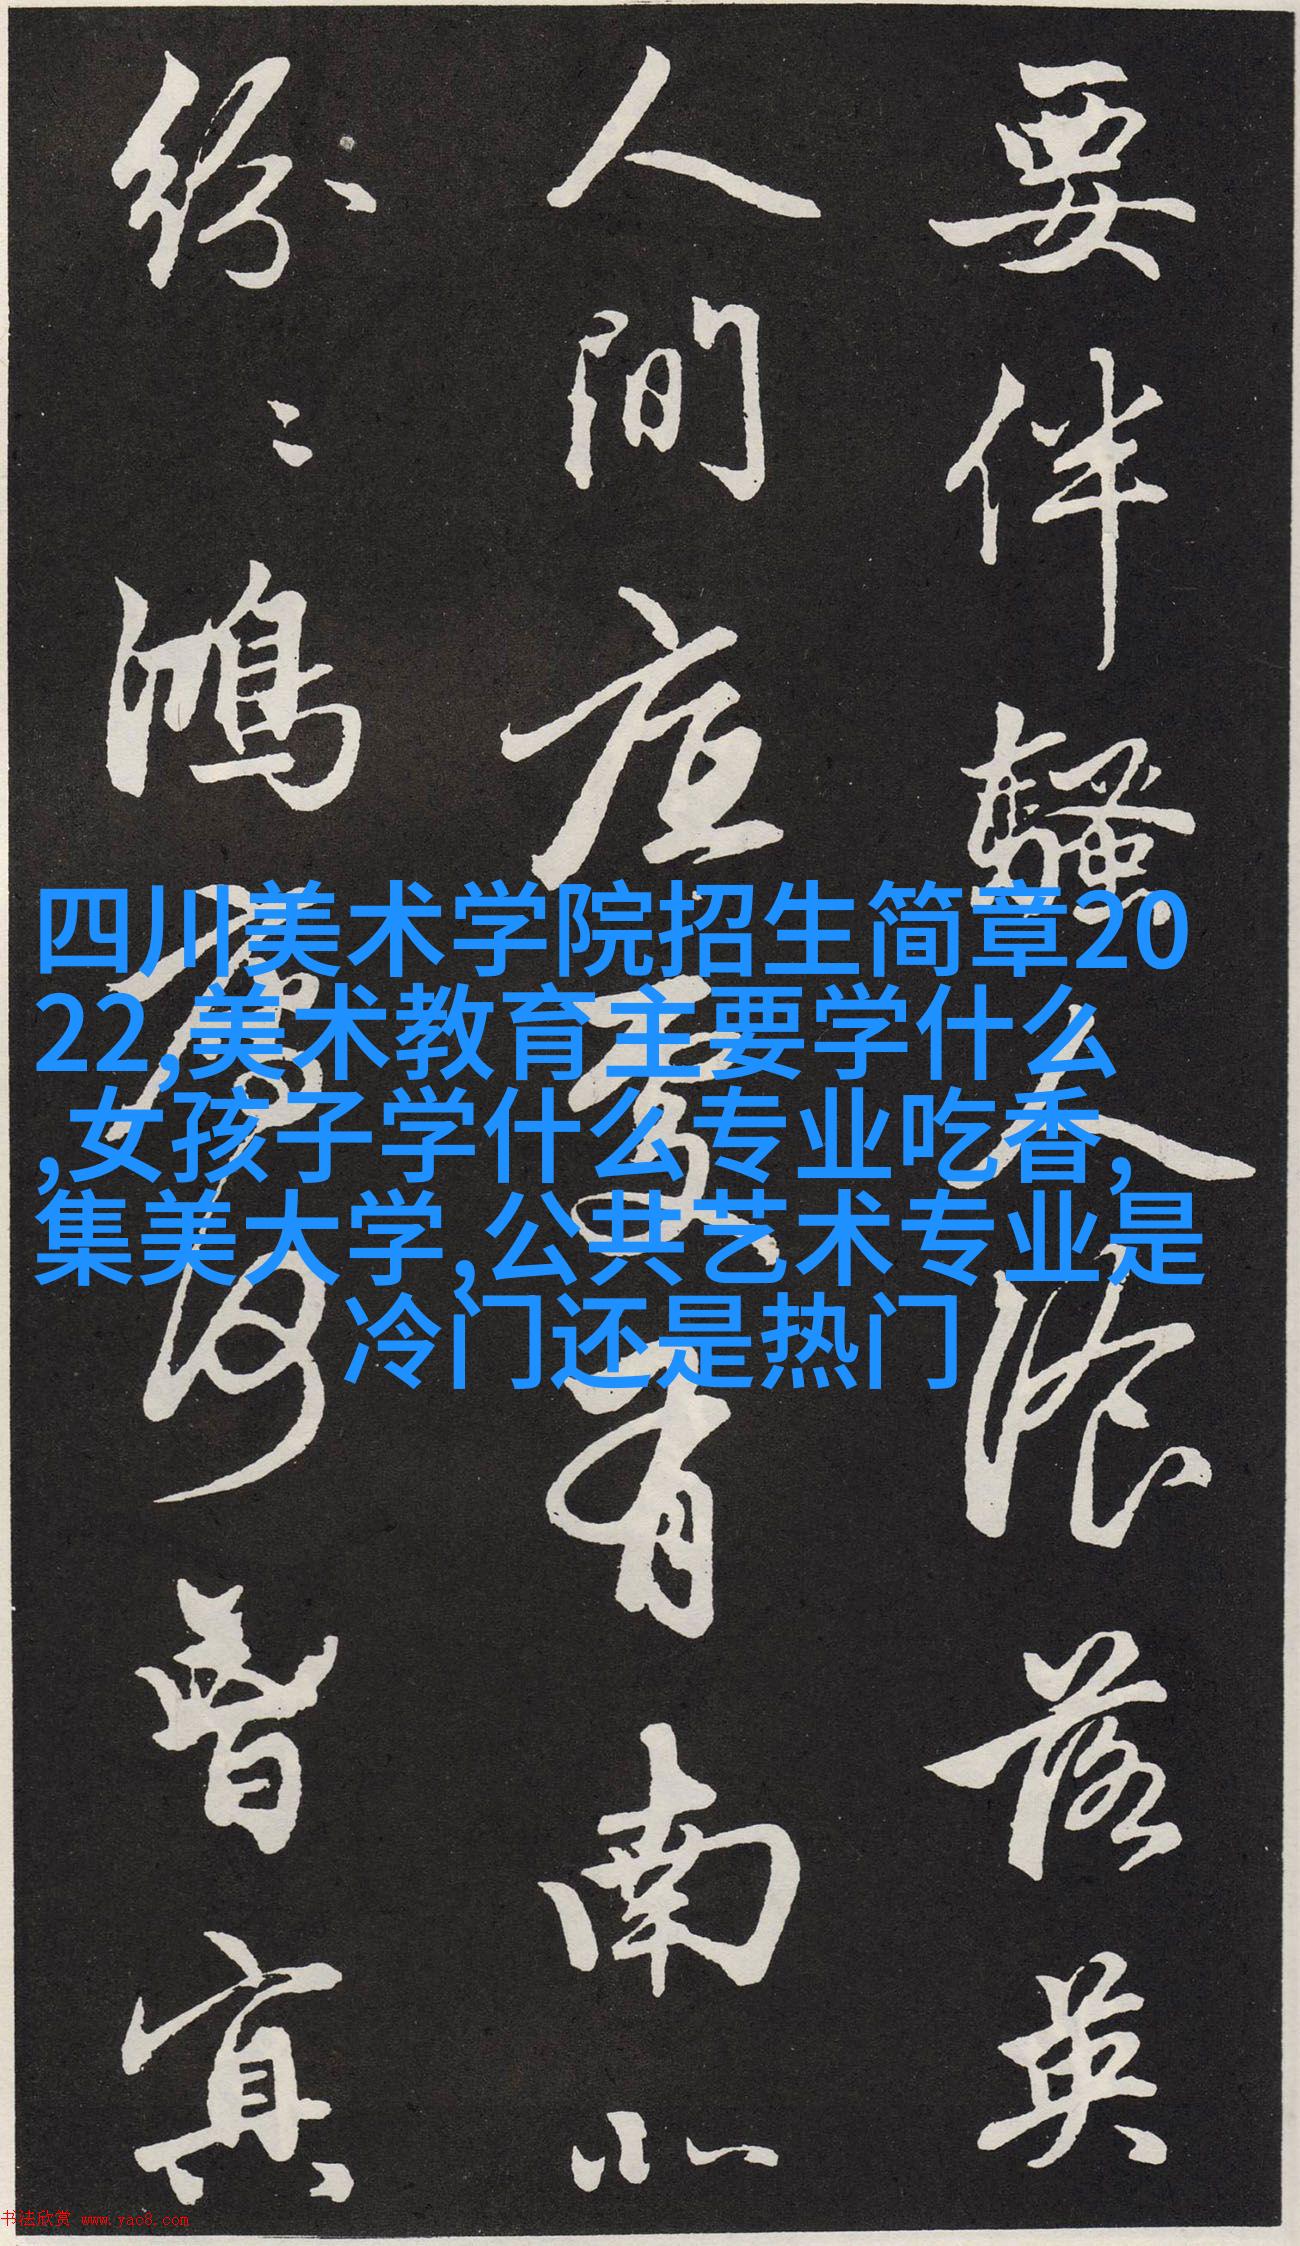 要伴騷人湌落英
人間底處有南北
紛〻鴻鴈何曾冥
四川美术学院招生简章20
22,美术教育主要学什么
,女孩子学什么专业吃香,
集美大学,公共艺术专业是
冷门还是热门
书法欣赏 www.yac8.com